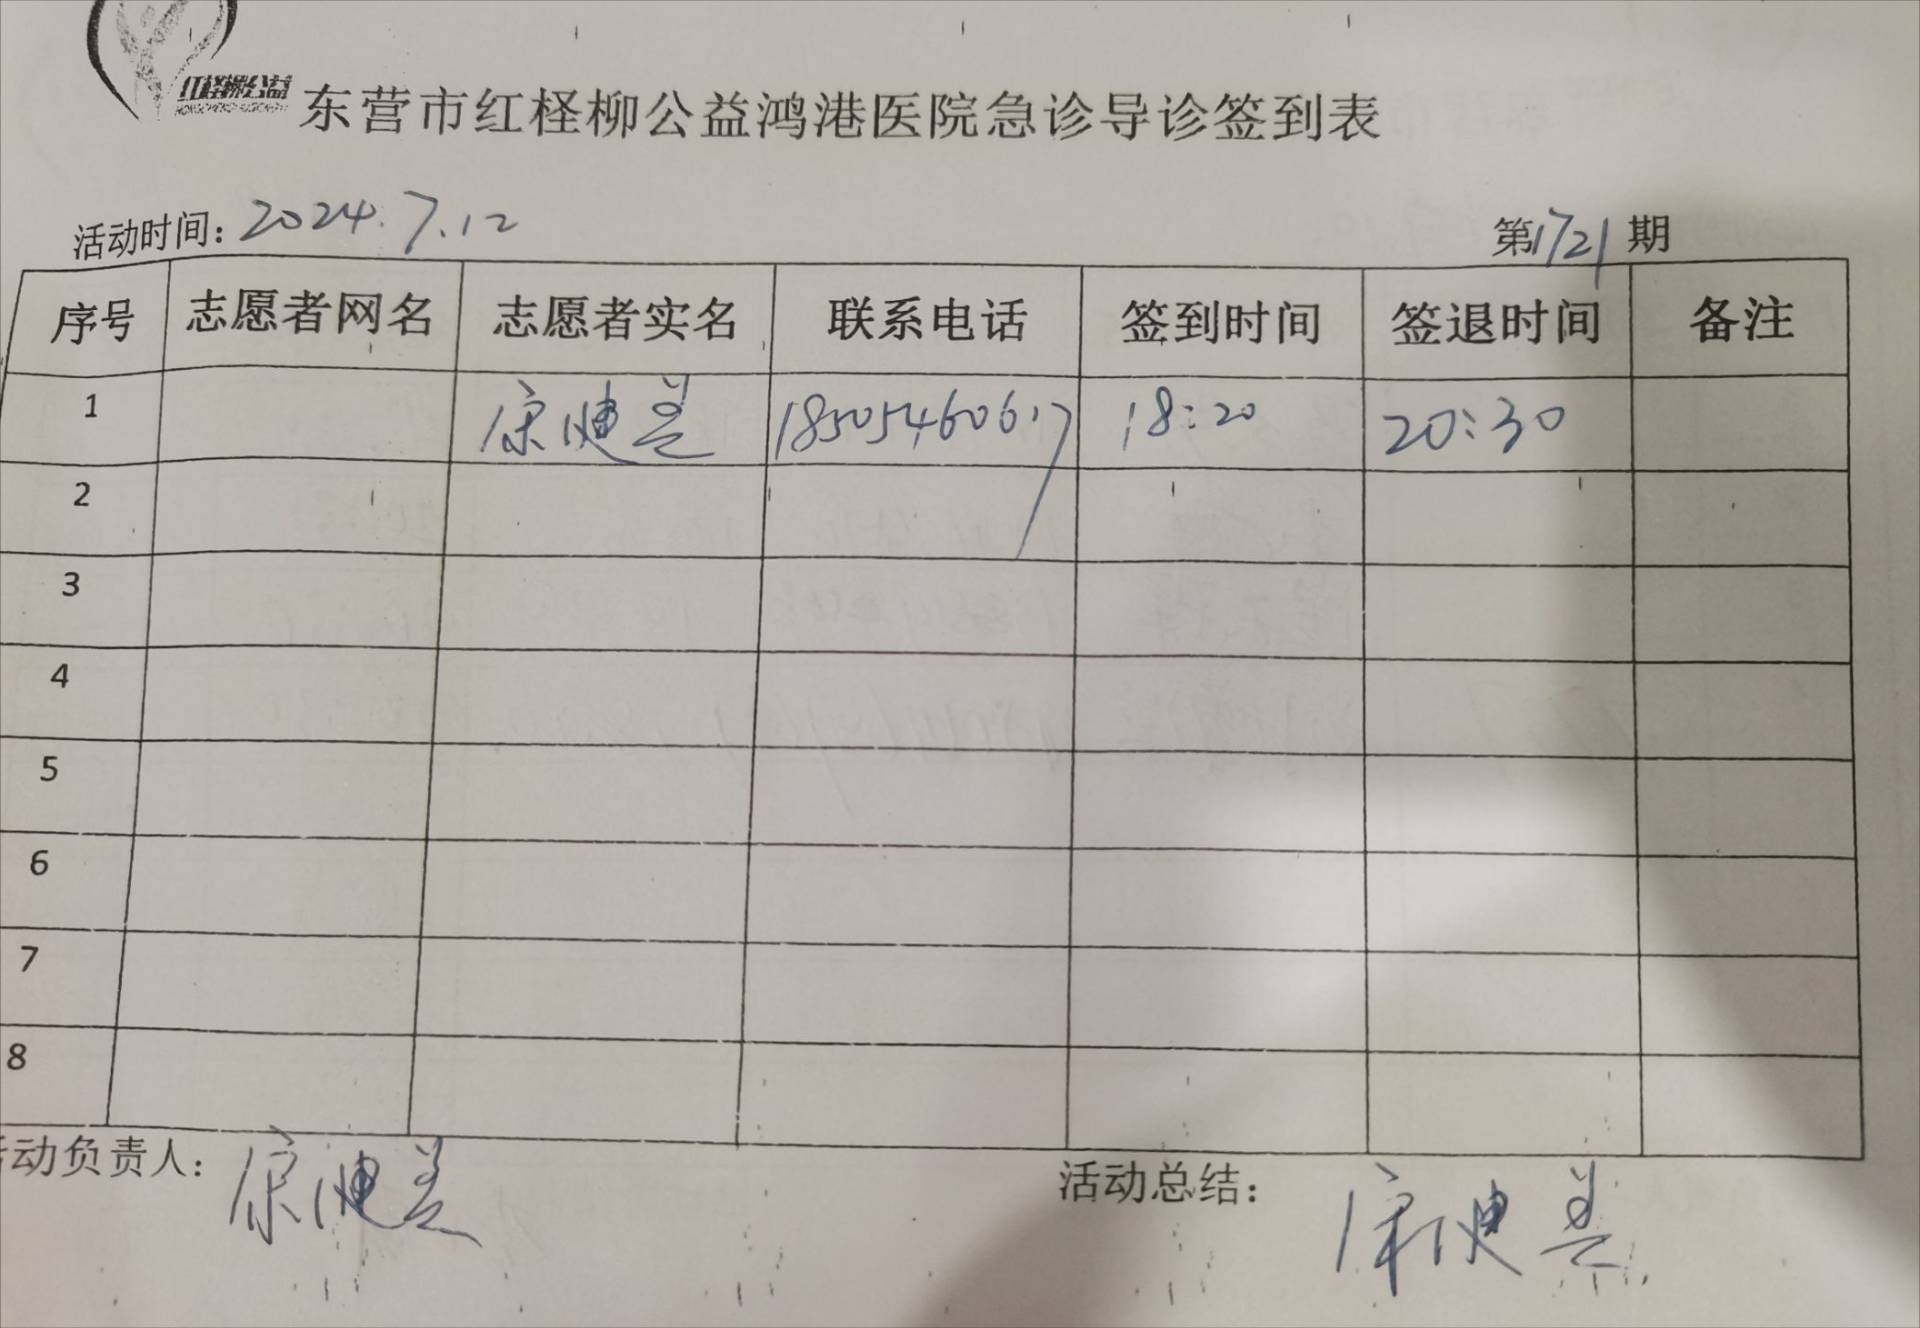 红柽柳公益
东营市红柽柳公益鸿港医院急诊导诊签到表
活动时间：2024.7.12 第1721期
序号 志愿者网名 志愿者实名 联系电话 签到时间 签退时间 备注
1 康 兰 18505460617 18:20 20:30
2
3
4
5
6
7
8
动负责人： 康 兰 活动总结： 康 兰